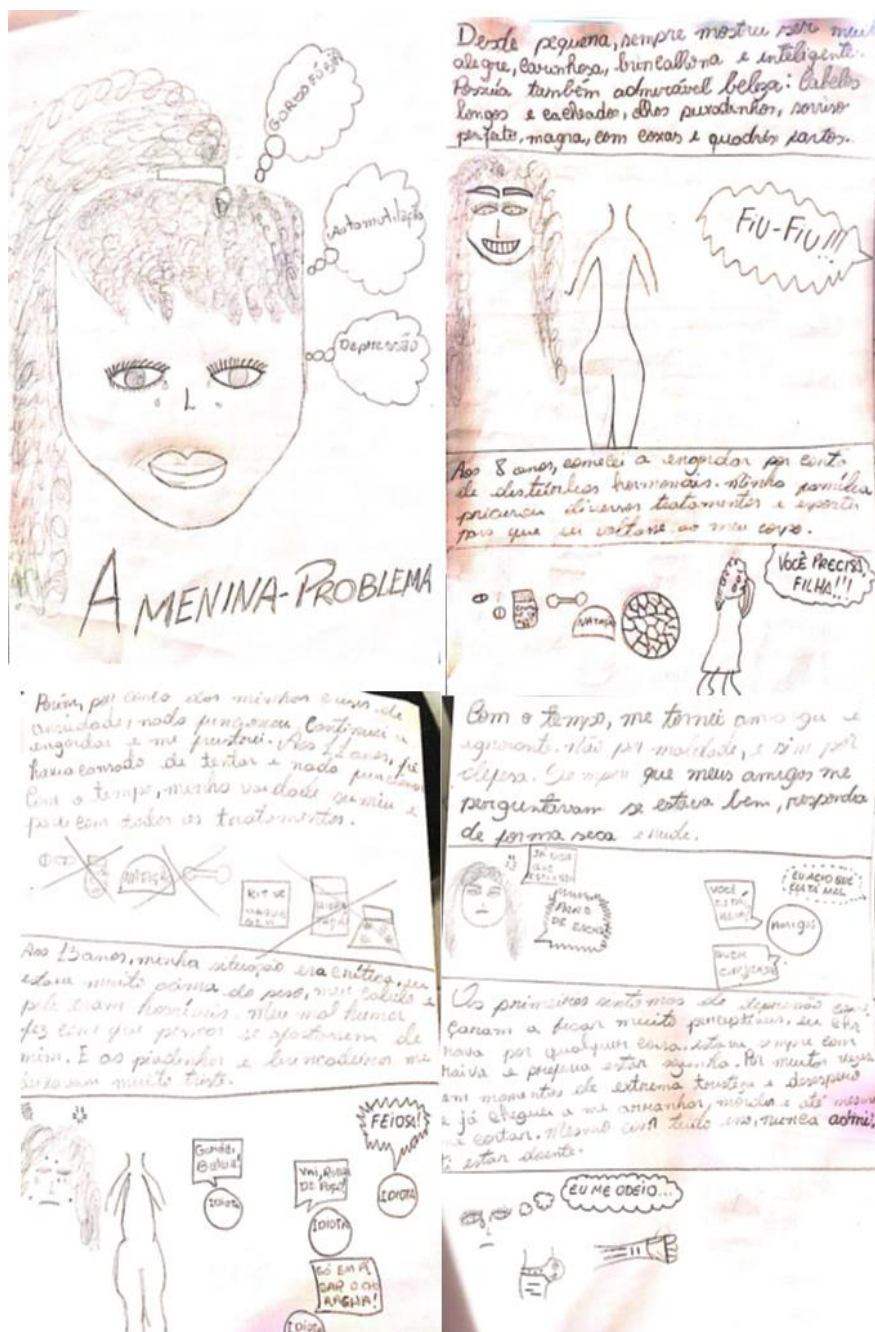 GORDOFOBIA
Automutilação
DEPRESSÃO
A MENINA-PROBLEMA
Desde pequena, sempre mostrei ser muit
alegre, carinhosa, brincalhona e inteligente.
Possuía também admirável beleza: Cabelos
longos e cacheados, olhos puxadinhos, sorriso
perfeito, magra, com coxas e quadris fartos.
FIU-FIU!!!
Aos 8 anos, comecei a engordar por conta
de distúrbios hormonais. Minha família
procurou diversos tratamentos e esportes
para que eu voltasse ao meu corpo.
NATAÇÃO
VOCÊ PRECISA,
FILHA!!!
Porém, por conta das minhas crises de
ansiedade, nada funcionou. Continuei a
engordar e me frustrei. Aos 11 anos, já
havia cansado de tentar e nada
Com o tempo, minha vaidade sumiu e
parei com todos os tratamentos.
NATAÇÃO
KIT DE
MAQUIA
GEM
Aos 13 anos, minha situação era crítica, eu
estava muito acima do peso, meu cabelo e
pele eram horríveis. Meu mal humor
fez com que pessoas se afastassem de
mim. E as piadinhas e brincadeiras me
deixavam muito triste.
Gorda,
Baleia!
IDIOTA
VAI, ROLHA
DE POÇO!
IDIOTA
FEIOSA!
IDIOTA
SÓ EM PI
SAR O CH
RACHA!
IDIOTA
Com o tempo, me tornei amarga e
ignorante. Não por maldade, e sim por
defesa. Sempre que meus amigos me
perguntavam se estava bem, respondia
de forma seca e rude.
JÁ DISSE
QUE
ESTOU SIM
PARO
DE ENCHER
VOCÊ
ESTÁ
BEM?
EU ACHO QUE
ESTÁ MAL
AMIGOS
QUER
CONVERSAR
Os primeiros sintomas de depressão come
çaram a ficar muito perceptíveis, eu cho
rava por qualquer coisa, estava sempre com
raiva e preferia estar sozinha. Por muitas vezes
em momentos de extrema tristeza e desespero
já cheguei a me arranhar, morder e até mesmo
me cortar. Mesmo com tudo isso, nunca admi
ti estar doente.
EU ME ODEIO...